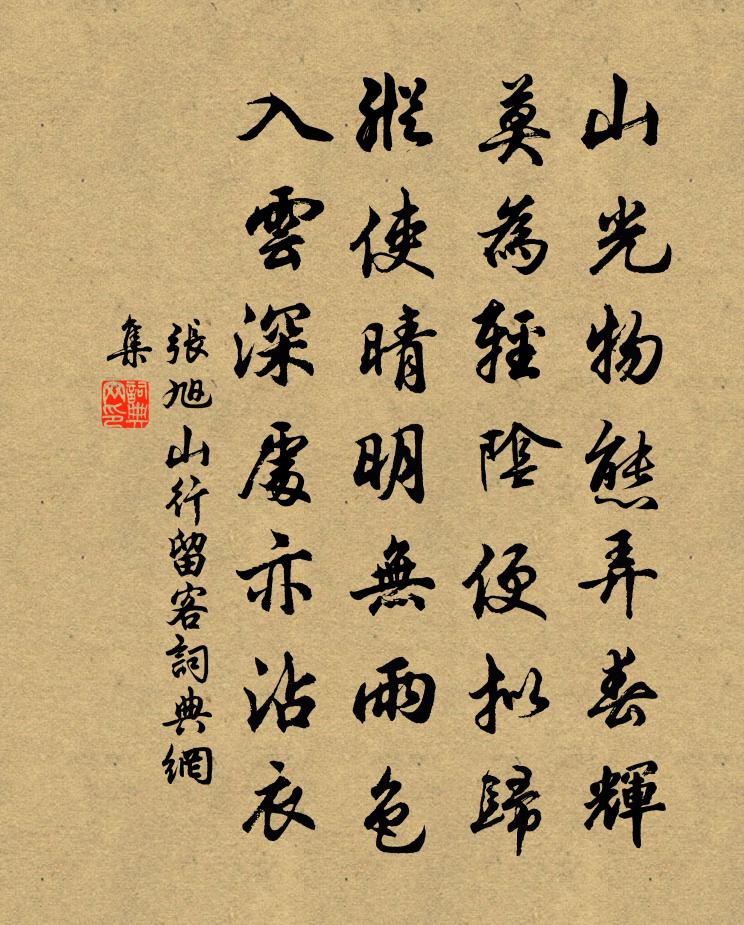 山光物態弄春輝
莫為輕陰便擬歸
縱使晴明無雨色
入雲深處亦沾衣
張旭山行留客詞典網
集
詞典
网印